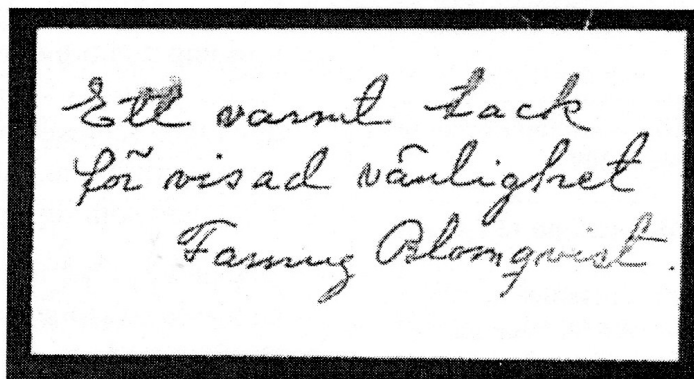 Ett varmt tack
för visad vänlighet
Fanny Blomqvist.